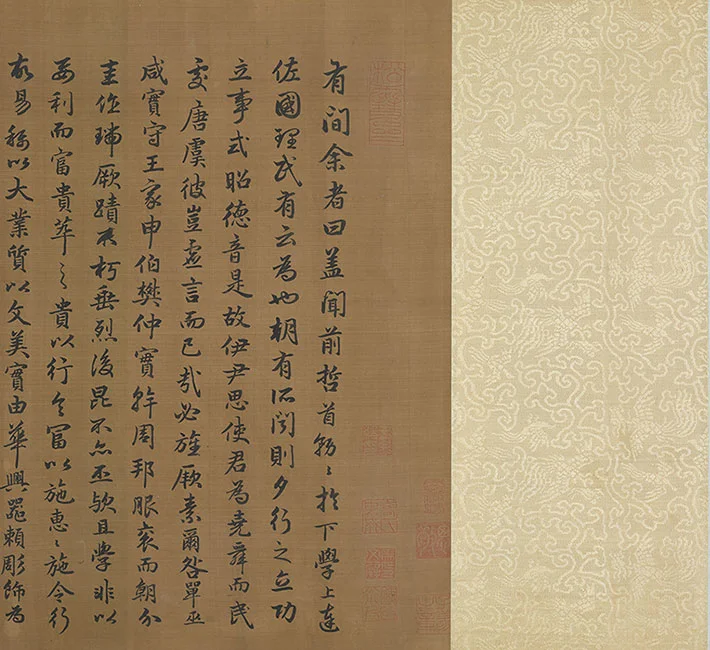 有間余者曰蓋聞前哲首務〻於下學上達
佐國理民有云為也朝有所聞則夕行之立功
立事式昭德音是故伊尹思使君為堯舜而民
處唐虞彼豈虛言而已哉必旌厥素爾咎單巫
咸實守王家申伯樊仲實幹周邦服袞而朝介
圭作瑞厥蹟不朽垂烈後昆不亦丕歟且學非以
要利而富貴萃之貴以行令富以施惠〻施令行
故易稱以大業質以文美實由華興器賴彫飾為